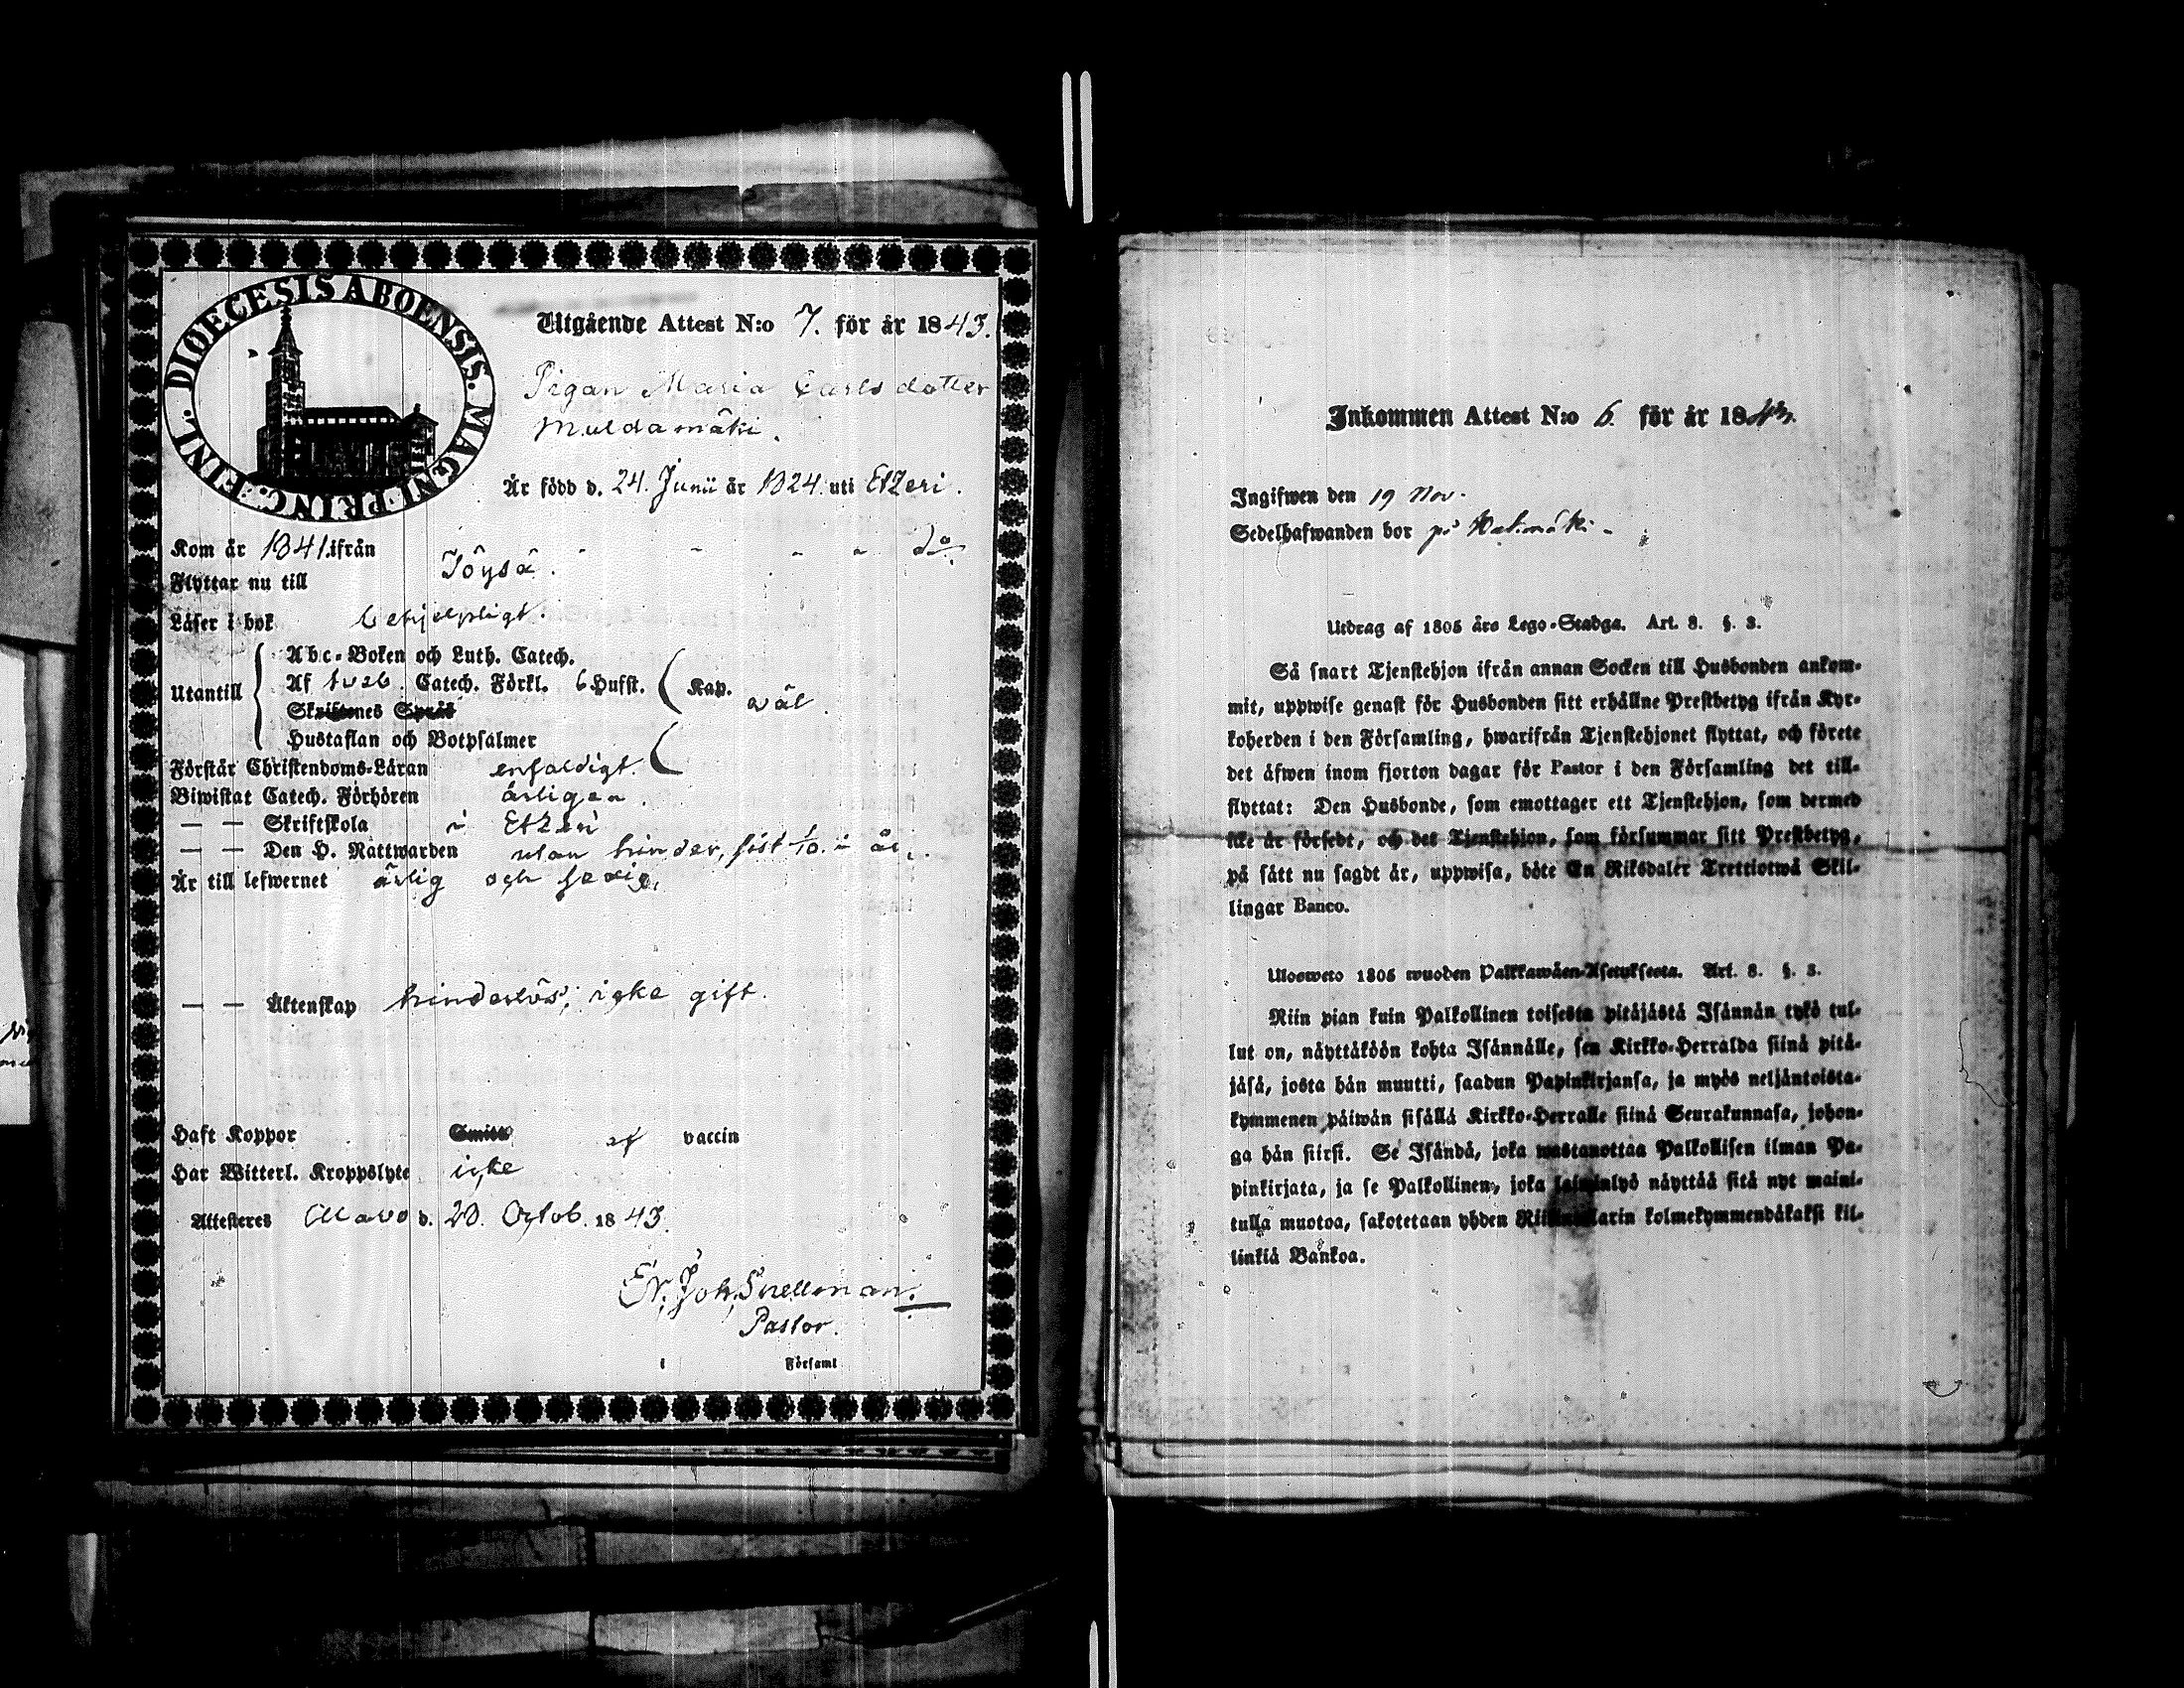 DIOECESIS ABOENSIS. MAGNI PRINC. FINL.
Utgående Attest N:o 7. för år 1843.
Pigan Maria Carlsdotter
Muldamäki.
Är född d. 24. Junii år 1824. uti Etzeri.
Kom år 1841. ifrån - - - - do.
Flyttar nu till Töysä.
Läser i bok behjelpligt.
Utantill
Abc-Boken och Luth. Catech.
Af Sveb. Catech. Förkl. 6 Hufst. Kap.
wäl.
Skriftenes Språk
Hustaflan och Botpsalmer
Förstår Christendoms-Läran enfaldigt.
Biwistat Catech. Förhören årligen.
— — Skriftskola i Etzeri
— — Den H. Nattwarden utan hinder, sist 1/10. i år.
Är till lefwernet ärlig och sedig.
— — Äktenskap hinderlös, icke gift.
Haft Koppor Smitt af vaccin
Har Witterl. Kroppslyte icke
Attesteres Alavo d. 20. Octob. 1843.
Er. Joh. Snellman.
Pastor.
i Församl
Inkommen Attest N:o 6. för år 1843.
Ingifwen den 19 Nov.
Sedelhafwanden bor på
Utdrag af 1805 års Lego-Stadga. Art. 8. §. 3.
Så snart Tjenstehjon ifrån annan Socken till Husbonden ankom-
mit, uppwise genast för Husbonden sitt erhållne Prestbetyg ifrån Kyr-
koherden i den Församling, hwarifrån Tjenstehjonet flyttat, och förete
det äfwen inom fjorton dagar för Pastor i den Församling det till-
flyttat: Den Husbonde, som emottager ett Tjenstehjon, som dermed
icke är försedt, och det Tjenstehjon, som försummar sitt Prestbetyg,
på sätt nu sagdt är, uppwisa, böte En Riksdaler Trettiotwå Skil-
lingar Banco.
Ulosweto 1805 wuoden Palkkawäen-Asetuksesta. Art. 8. §. 3.
Niin pian kuin Palkollinen toisesta pitäjästä Isännän tykö tul-
lut on, näyttäköön kohta Isännälle, sen Kirkko-Herralda siinä pitä-
jäsä, josta hän muutti, saadun Papinkirjansa, ja myös neljäntoista-
kymmenen päiwän sisällä Kirkko-Herralle siinä Seurakunnasa, johon-
ga hän siirsi. Se Isändä, joka wastanottaa Palkollisen ilman Pa-
pinkirjata, ja se Palkollinen, joka laiminlyö näyttää sitä nyt maini-
tulla muotoa, sakotetaan yhden Riikintalarin kolmekymmendäkaksi kil-
linkiä Bankoa.